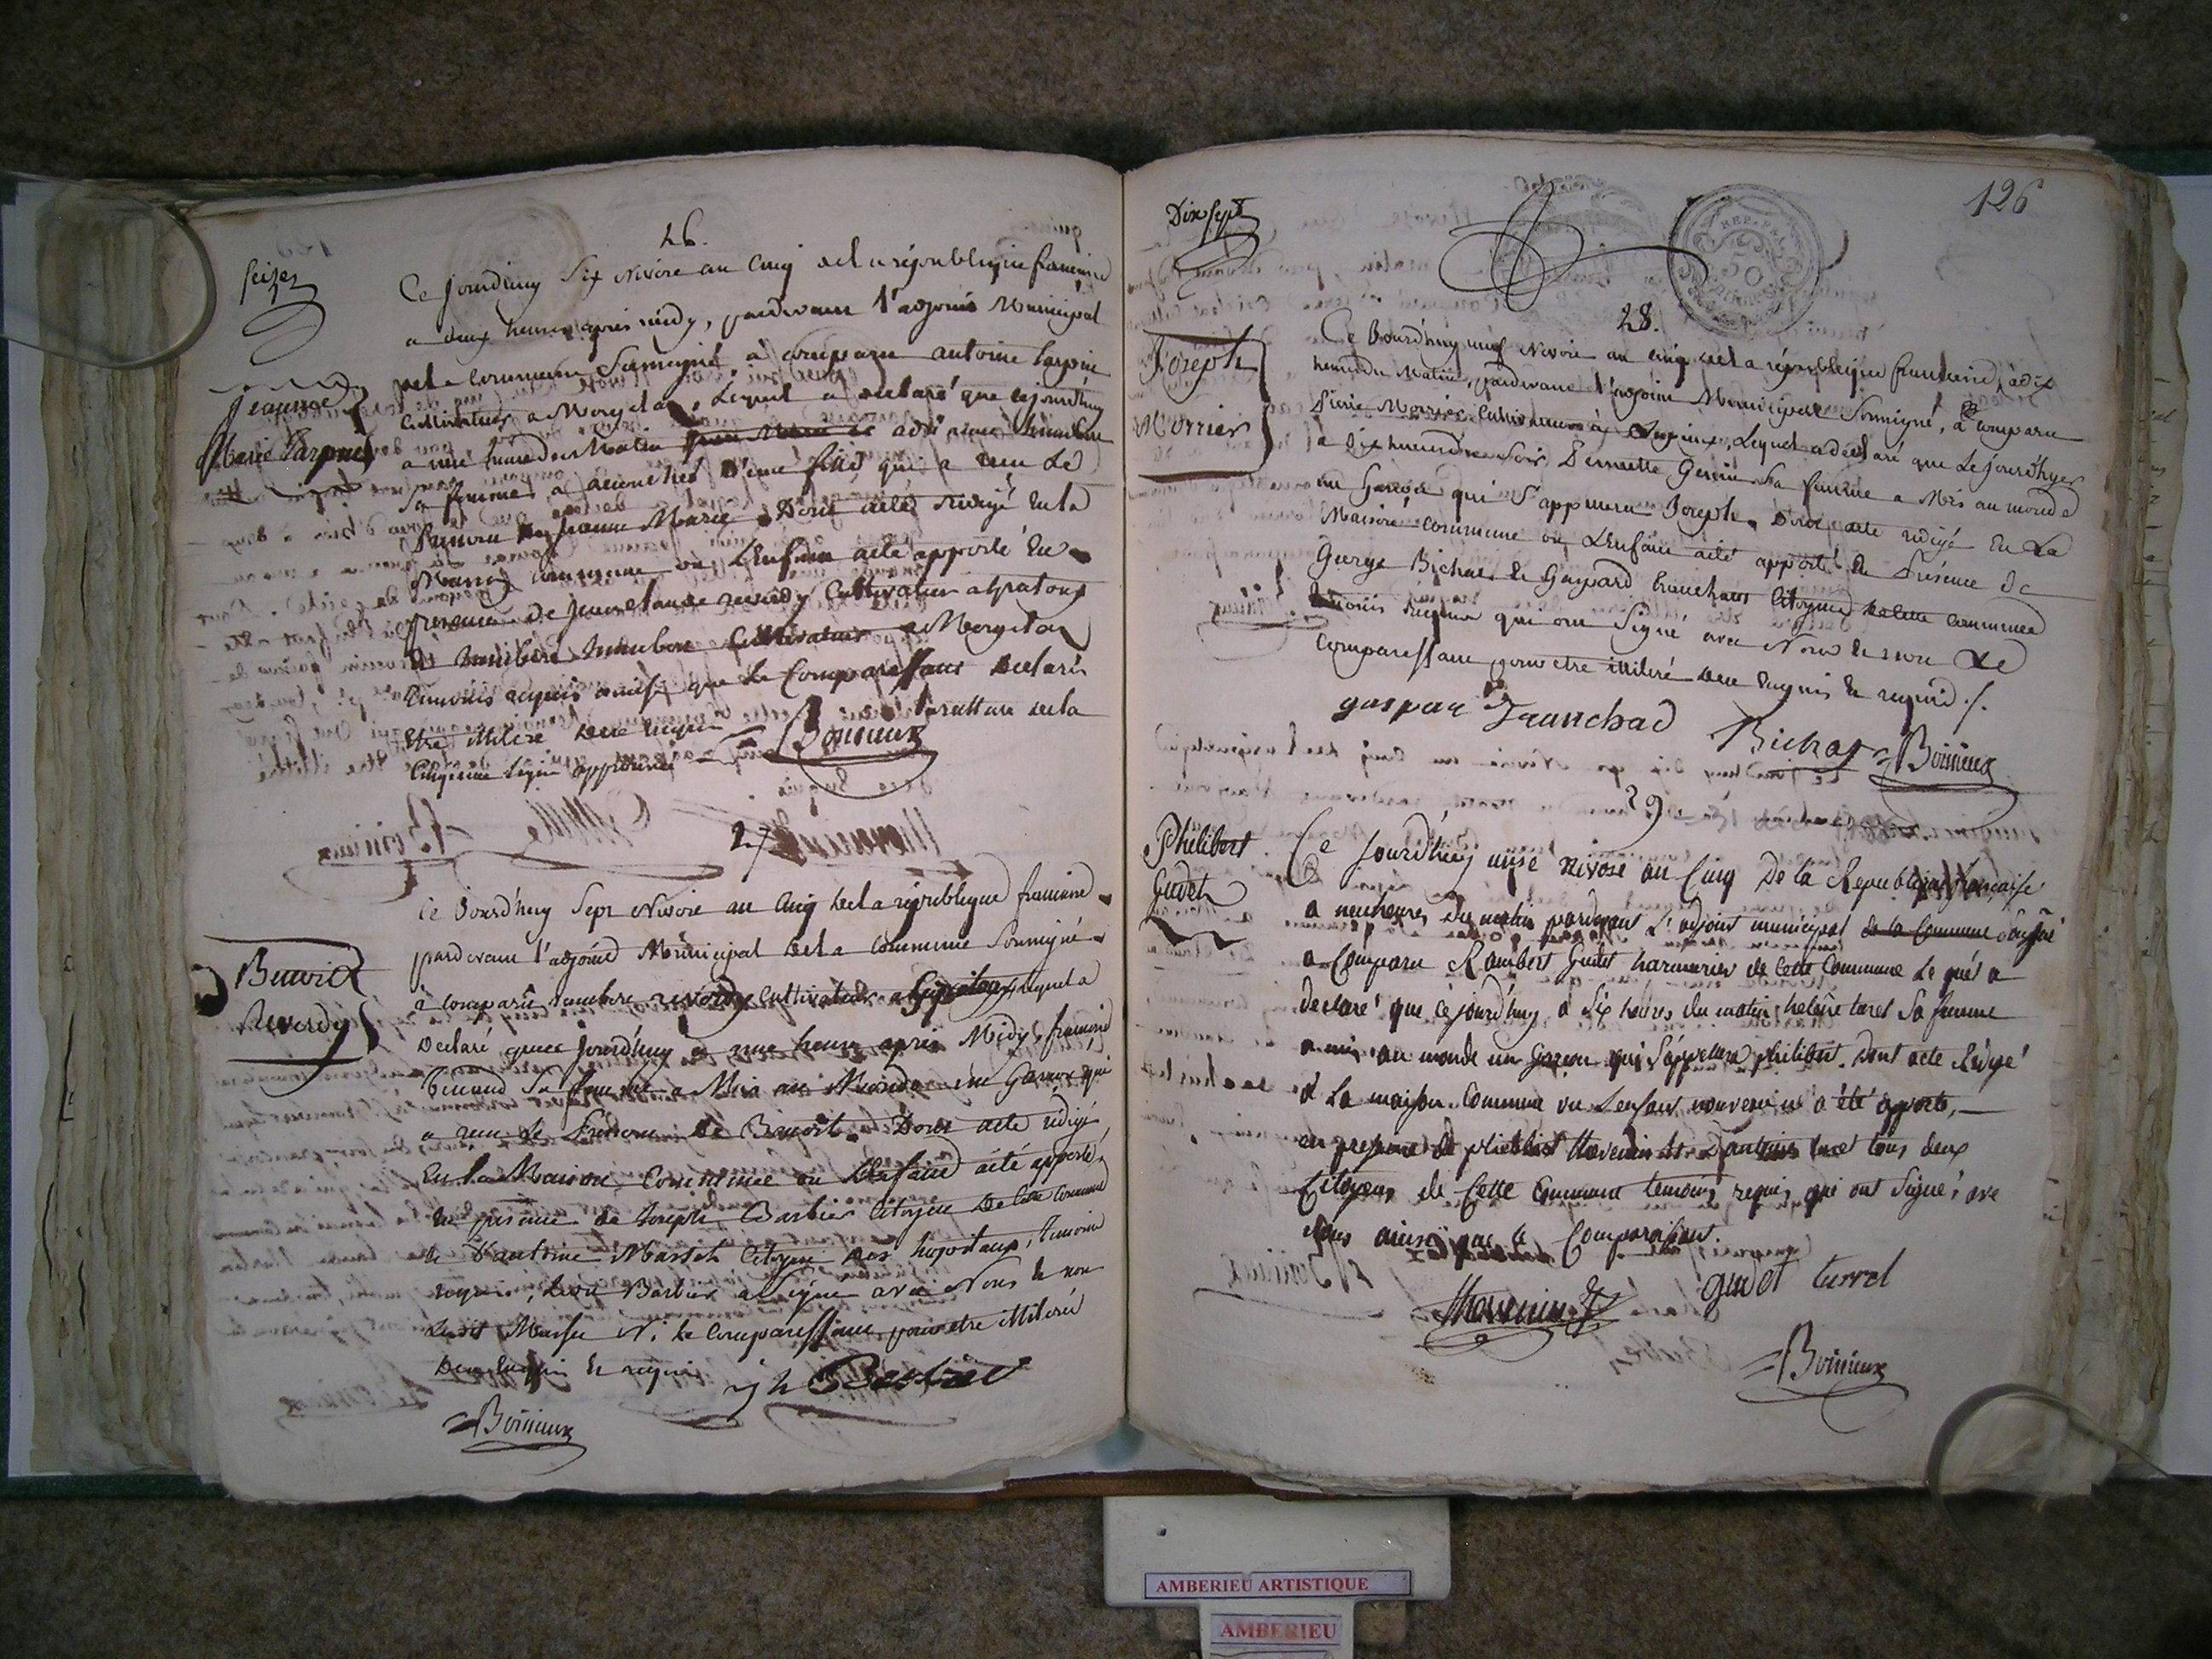 seize
26.
Ce jourdhuy Six Nivose an Cinq de la république francaise
a deux heures apres midy, pardevant l'adjoint Municipal
de la Commune Soussigné, a comparu antoine Carpin
Cultivateur a Morgelas, Lequel a declaré que cejourdhuy
Jeanne
Marie Carpin
a une heure du Matin
Sa femme a accouchée d'une fille qui a reçu Le
Prenom de Jeanne Marie. Dont acte redigé En la
Maison commune ou L'Enfant a été apporté En
presence de Jean Claude reverdy Cultivateur
Cultivateur a Morgelas
temoins requis ainsi que Le Comparessant Declaré
Etre illiteré de ce Enquis la rature de la
Cinquieme ligne approuvée Boisieux
27
Ce Jourdhuy Sept Nivose an Cinq de la république francaise
pardevant l'adjoint Municipal de la commune Soussigné
Benoist
Reverdy
à comparu reverdy cultivateur lequel a
Declaré que ce jourdhuy a une heure apres Midy, francoise
Sa femme a Mis au Monde un Garcon qui
a reçu Le Prénom De Benoit. Dont acte rédigé
En La Maison Commune ou L'Enfant a été apporté,
En presence de Joseph Barbier Citoyen De Cette Commune
Et D'antoine Massot Citoyen des hopitaux, temoins
requis, Ledit Barbier a Signé avec Nous Et non
Ledit Massot Ni Le Comparessant pour etre illiteré
De ce Enquis Et requis
jh Barbier
Boisieux
Dix sept
126
28.
Joseph
Morrier
Ce Jourdhuy neuf Nivose an cinq de la république francaise, à dix
heures du Matin, pardevant l'adjoint Municipal Soussigné, a comparu
Pierre Morrier Cultivateur à, Lequel a declaré que Le jourdhyer
à Six heures du Soir Pernette Genin Sa femme a Mis au monde
un Garcon qui S'appellera Joseph, Dont acte redigé En La
Maison commune ou L'Enfant a été apporté En Présence de
George Bichat Et Gaspard Tranchant Citoyens de Cette Commune
temoins requis qui ont Signé avec Nous Et non Le
Comparessant pour etre illiteré De ce Enquis Et requis ./.
gaspar Tranchad Bichat Boisieux
29
Philibert
Gudet
Ce jourdhuy unse nivose an Cinq De la Republique française
a neuf heures du matin pardevant L'adjoint municipal de la Commune Soussigné
a Comparu Rambert Gudet de Cette Commune Le quel a
declaré que cejourdhuy a Six heures du matin turel Sa femme
a mis au monde un Garcon qui S'appellera philibert. Dont acte Redigé
a La maison Commune ou L'enfant nouveau né a été apporté,
en presence de philibert thevenin et D'antoine turel tous deux
Citoyens de Cette Commune temoins requis qui ont Signé ave
Nous ainsi que le Comparaissant.
Thevenin gudet turrel
Boisieux
REP. FRA.
50
AMBERIEU ARTISTIQUE
AMBERIEU